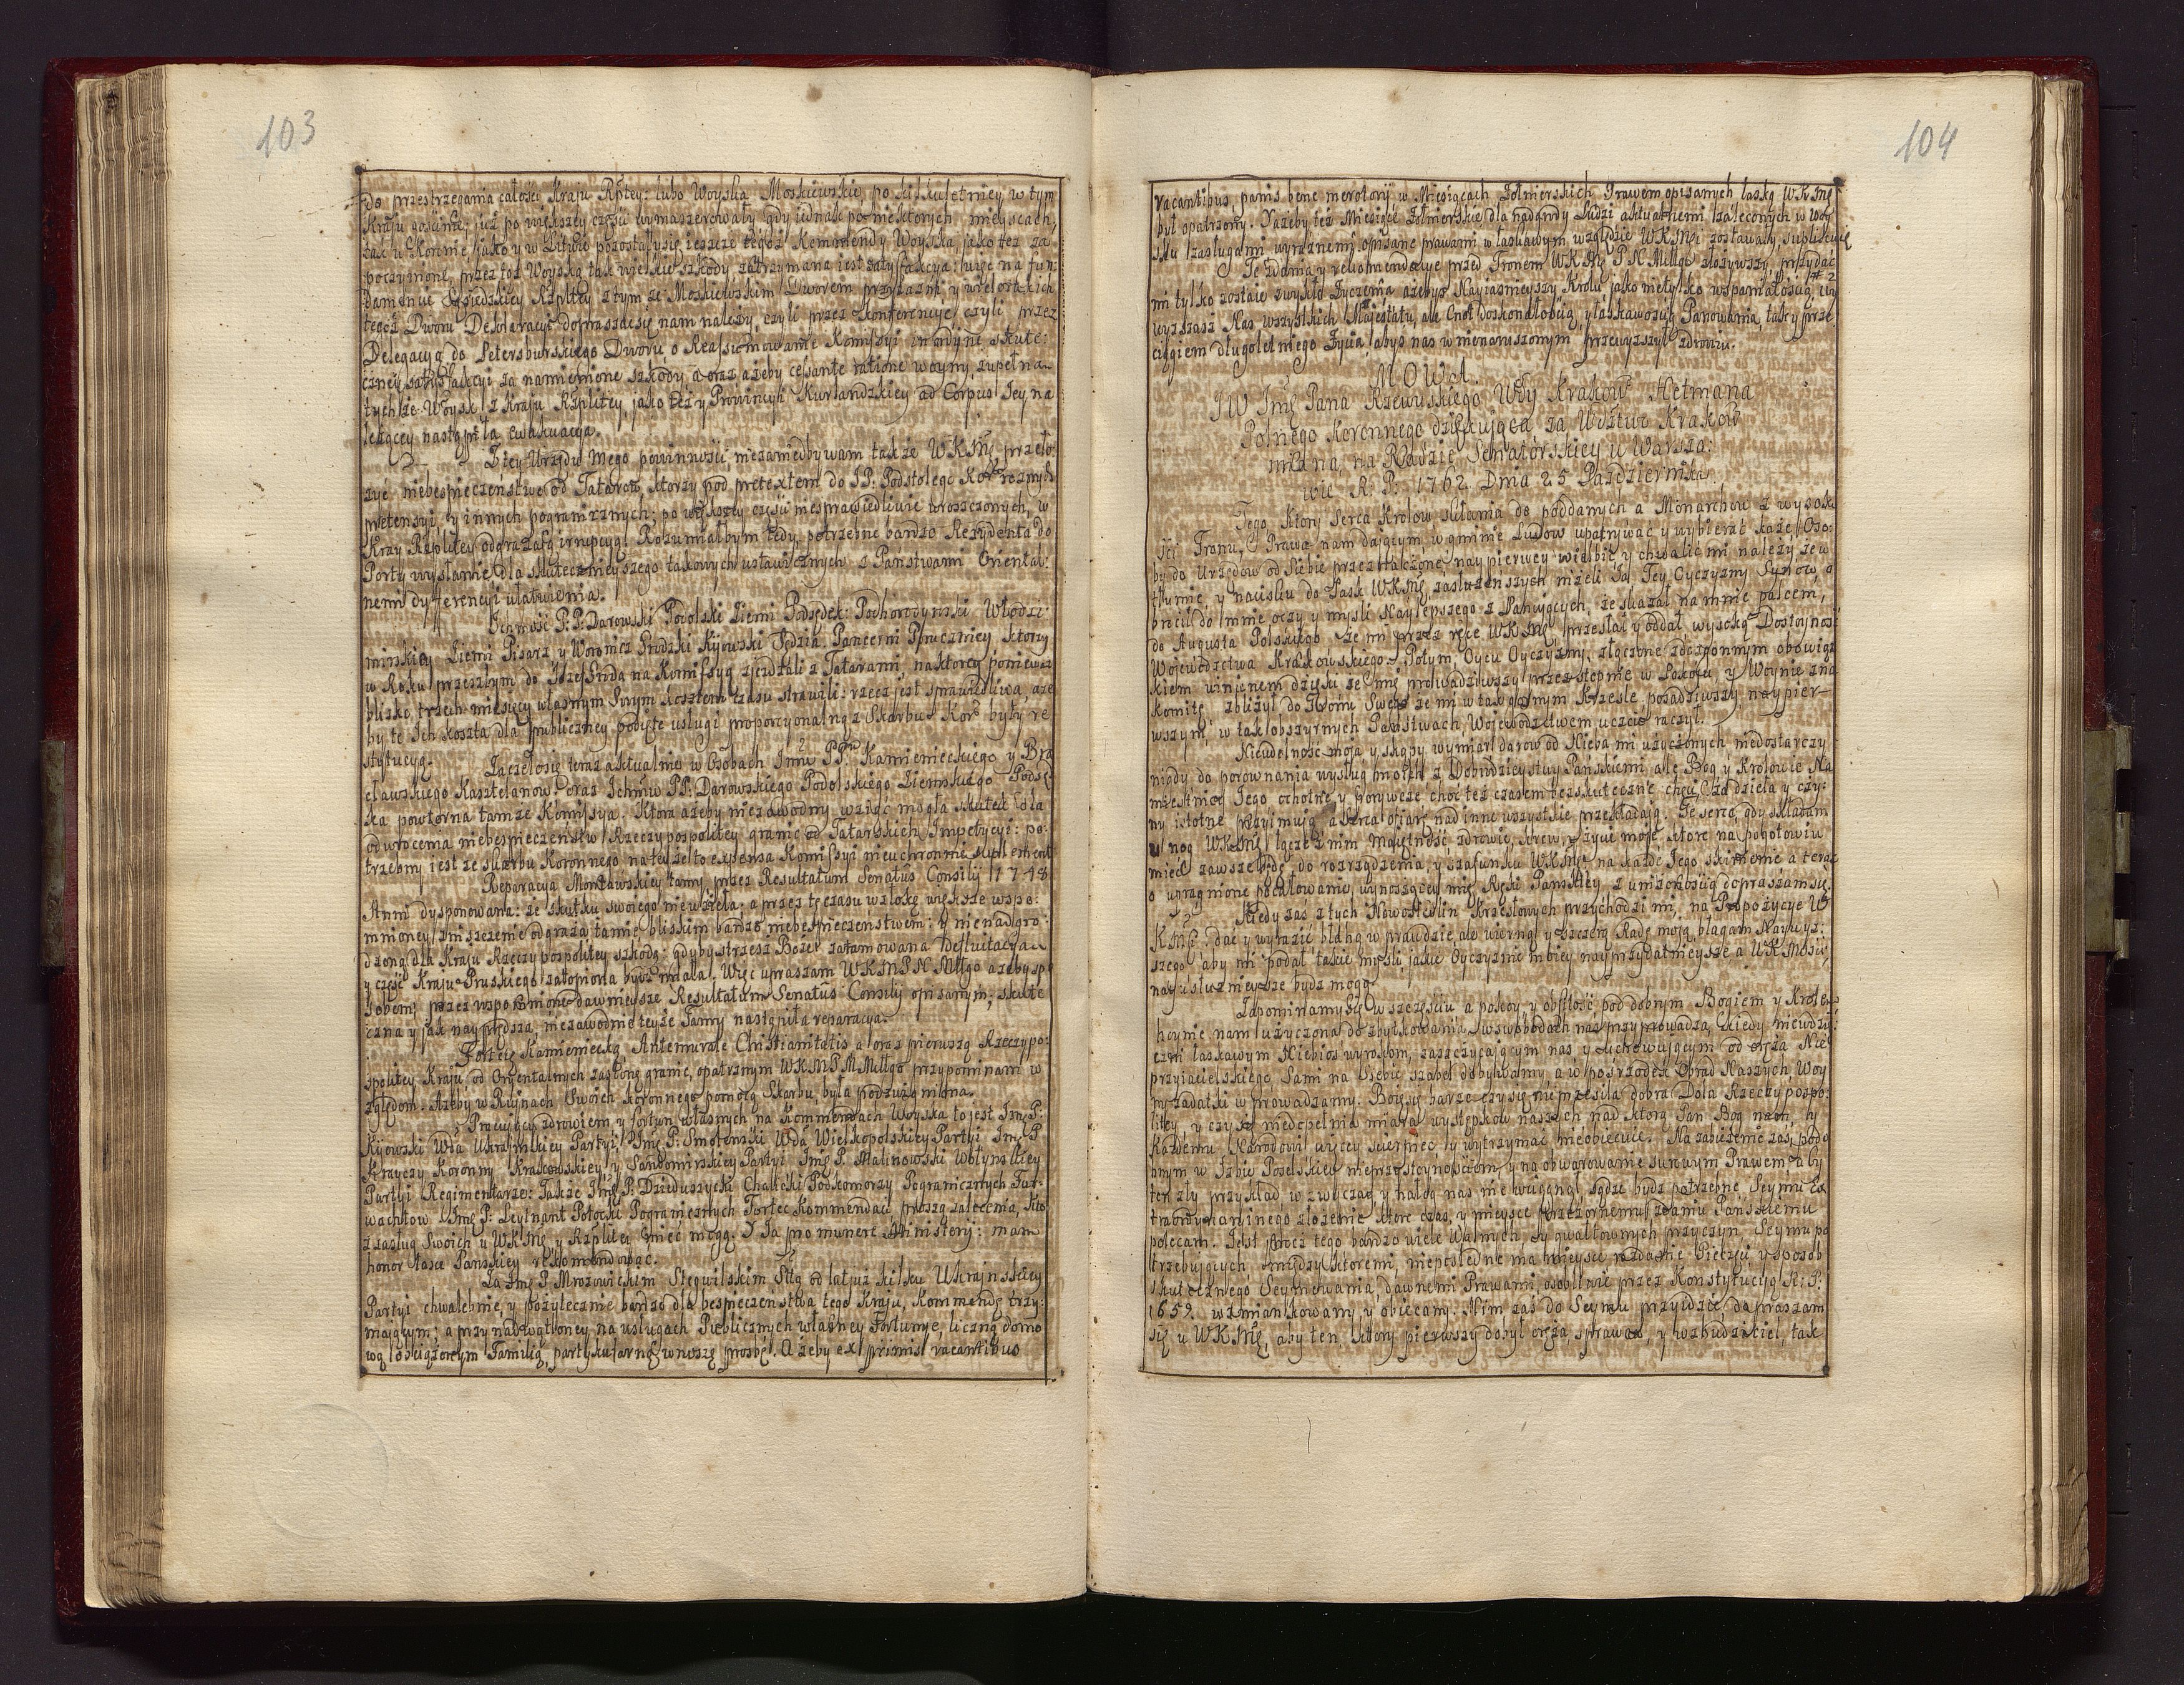 103
do przestrzegania całości Kraju Rptey: lubo Woyska Moskiewskie, po kilkuletniey w tym
Kraju gościnie, już po większey części wymaszerowały, gdy iednak po niektorych mieyscach,
tak w Koronie jako y w Litwie pozostałysię ieszcze tegoż Kommendy Woyska jako też za
poczynione przez toż Woysko tak wielkie szkody zatrzymana iest satysfakcya: więc na fun:
damencie Sąsiedzkiey Rzpltey z tym że Moskiewskim Dworem przyjazni y wielorakich
tegoż Dworu Deklaracyi dopraszaćsię nam należy, czyli przez konferencye czyli przez
Delegacyą do Petersburskiego Dworu o Reassumowanie Komissyi in ordine skute:
czney satysfakcyi za namienione szkody a oraz ażeby cessante ratione woyny zupełna
tychże Woysk z Kraju Rzpltey, jako też y Prowincyi Kurlandzkiey ad Corpus Jey na
leżącey nastąpiła ewakuacya.
Z tey Urzędu Mego powinności, niezaniedbywam także WKMci przeło:
żyć niebespieczeństwo od Tatarow, ktorzy pod pretextem do JP: Podstolego Kor: roznych
pretensyi, y innych pogranicznych: po większey części niesprawiedliwie wroszczonych, w
Kray Rzpltey odgrażaią irrupcyą. Rozumiałbym tedy, potrzebne bardzo Rezydenta do
Porty wysłanie dla skutecznieyszego takowych ustawicznych z Państwami Oriental:
nemi dyfferencyi ułatwienia.
Ichmość P.P. Darowski Podolski Ziemi Podsędek: Podhorodynski Włodzi:
mirskiey Ziemi Pisarz y Woronicz Grodzki Kijowski Sędzia. Pancerni Porucznicy ktorzy
w Roku przeszłym do na Komissyą zjeżdżali z Tatarami, na ktorey ponieważ
blisko trzech miesięcy własnym Swym kosztem czasu strawili: rzecz jest sprawiedliwa aże
by te Ich koszta dla publiczney podięte usługi proporcyonalną z Skarbu Kor: były re
stytucyą.
Zaczęłosię teraz aktualnie w Osobach Ichmć PP: Kamienieckiego y Bra
cławskiego Kasztelanow oraz Ichmciow PP: Darowskiego Podolskiego Ziemskiego Podsę
ka powtorna tamże Komissya. Ktora ażeby niezawodny wziąć mogła skutek dla
odwrocenia niebespieczeństw Rzeczypospolitey granic od Tatarskich Impetycyi: po:
trzebny jest ze skarbu Koronnego na też expensa Komissyi nieuchronnie suplement
Reparacya Montawskiey tamy przez Resultatum Senatus Consilij 1748
Anni dysponowana: że skutku swoiego niewzięła: a przez tę czasu wzłokę większe wspo:
mnioney zniszczenie odgraża tamie bliskim bardzo niebespieczeństwem: y nienadgro:
dzoną dla Kraju Rzeczypospolitey szkodą: gdyby strzesz Boże! zatamowana Defluitacya
y część Kraju Pruskiego zatopiona bydź miała. Więc upraszam WKMPNMłgo ażeby spo
sobem, przez wspomnione dawnieysze Resultatum Senatus Consilij opisanym; skute
czna y jak nayprędsza, niezawodnie teyże Tamy nastąpiła reparacya.
Fortecę Kamieniecką Antemurale Christianitatis a oraz pierwszą Rzeczypo:
spolitey Kraju od Oryentalnych zasłonę granic, opatrznym WKMPNMłłgo przypominam w
zględom. Ażeby w Ruynach Swoich koronnego pomocą Skarbu, była podzwigniona.
Pracuiący zdrowiem, y fortun własnych na Kommendach Woyska to jest Jmć P:
Kijowski Wda Ukraińskiey Partyi, Jmć P: Smolenski Wda Wielkopolskiey Partyi Jmć P
Krayczy Koronny Krakowskiey y Sandomirskiey Partyi Jmć P. Malinowski Wołynskiey
Partyi Regimentarze: Także Jmć P: Dzieduszycki Chalicki Podkomorzy Pogranicznych Fut:
wachtow Jmć P: Leytnant Potocki Pogranicznych Fortec Kommendant, proszą zalecenia, kto
z zasług Swoich u WKMci y Rzpltey mieć mogą. Y Ja pro munere Ministerij: mam
honor łasce Pańskiey rekomendować.
Za Jmć P Mrozowickim Stęgwilskim Sttą od lat już kilku Ukrainskiey
Partyi chwalebnie, y pożytecznie bardzo dla bespieczenstwa tego Kraju, Kommendę trzy:
maiącym; a przy nadwątloney na usługach Publicznych własney Fortunie, liczną domo
wą obciążonym Familią partykularną wnoszę prośbę. Ażeby ex primis vacantibus
104
vacantibus, panis bene merotorij w Miesiącach Żołnierskich Prawem opisanych łaską WKMci
był opatrzony. Y ażeby też Miesiące Żołnierskie dla nadgrody Ludzi aktualnemi zaleconych w woy
sku zasługami wyraznemi opisane prawami w łaskawym względzie WKMci zostawały suplikuię
Te zdania y rekomendacye przed Tronem WKMci PNMłłgo złożywszy, przydać
mi tylko zostaie zwykłe życzenia ażebyś Nayiasnieyszy Krolu jako nietylko wspaniałością wy
wyszszasz Nas wszystkich Majestatu, ale Cnot doskonałością, y łaskawością Panowania, tak y prze
ciągiem długoletniego życia, abyś nas w nienaruszonym przewyszszył zdrowiu.
MOWA.
JW Jmć Pana Rzewuskiego Wdy Krakow: Hetmana
Polnego Koronnego dziękuiąca za Wdztwo Krakow
miana na Radzie Senatorskiey w Warsza:
wie R: P: 1762. Dnia 25 Pazdziernika.
Tego, Ktory Serca Krolow skłania do poddanych a Monarchow z wysoko
ści Tronu, Prawa nam daiącym w gminie Ludow upatrywać y wybierać każe Oso:
by do Urzędow od Siebie przeznaczone naypierwey wielbić y chwalić mi należy, że w
tłumie, y nacisku do Łask WKMci, zasłużenszych niżeli Ja Tey Oyczyzny Synow, o
brocił do mnie oczy y mysli Naylepszego z Panuiących, że skazał na mnie palcem,
do Augusta Polskiego że mi przez ręce WKMci przesłał y oddał wysoką Dostoynosć
Wojewodztwa Krakowskiego. Potym, Oycu Oyczyzny, złączone zdozgonnym obowiąz
kiem winienem dzięki że mię prowadziwszy przez stopnie w Pokoju, y Woynie zna
komite, zbliżył do Tronu Swego że mi w tak gornym Krzesle posadziwszy, naypier—
wszym, w tak obszyrnych Państwach, Wojewodztwem uczcić raczył.
Nieudolność moja y skąpy wymiar darow od Nieba mi użyczonych niedostarczy
nigdy do porownania wysług moich z Dobrodzieystwy Pańskiemi, ale Bog, y Krolowie Na
miestnicy Jego ochotne, y porywcze choć też czasem bezskuteczne chęci, za dzieła y czy:
ny istotne przyimują, a serca ofiarę nad inne wszystkie przekładają. Te serce gdy składam
u nog WKMci, łączę z nim Maiętność zdrowie, krew, y życie moje ktore na pogotowiu
mieć zawsze będę, do rozrządzenia, y szafunku WKMci na każde Jego skinienie a teraz
o upragnione pocałowanie wynoszącey mię Ręki Pańskiey, z uniżonością dopraszam się.
Kiedy zaś z tych Nowosiedlin Krzesłowych przychodzi mi, na Propozycye W
KMci: dać y wyrazić błahą w prawdzie, ale wierną y szczerą Radę moją, błagam Naywysz:
szego aby mi podał takie mysli jakie Oyczyznie mojey nayprzydatnieysze a WKMości
nayusłużnieysze bydz mogą.
Zapominamysię w szczęściu a pokoy y obfitość pod dobrym Bogiem y Krole
hoynie nam użyczona do zbytkowania w swobodach nas przyprowadza. Kiedy niewdzię:
czni łaskawym Niebios wyrokom, zaszczycającym nas y uchowującym od oręża Nie
przyiacielskiego, Sami na Siebie szabel dobywamy, a w pośrzodek Obrad Naszych Woy
ny zadatki wprowadzamy. Boię się barzo czy się nieprzesiliła dobra Dola Rzeczypospo:
litey, y czy się niedopełnia miara występkow naszych nad ktorą Pan Bog nam, ły
każdemu Narodowi, więcey cierpieć y wytrzymać nieobiecuie. Na zabieżenie zaś, podo
bnym w Izbie Poselskiey nieprzystoynościom, y na obwarowanie surowym Prawem, aby
ten zły przykład w zwyczay y nałog nas niewciągnął, sądzę bydz potrzebne Seymu Ex
traordynaryinego złożenie, ktore czas, y mieysce przezornemu zdaniu Pańskiemu
polecam. Jest procz tego bardzo wiele Walnych, y gwałtownych przyczyn Seymu po
trzebujących między ktoremi, nieposlednie ma mieysce Pieczęci y sposob
skutecznego Seymowania, dawnemi Prawami, osobliwie przez Konstytucyą R: P:
1659. wzmiankowany, y obiecany. Nim zaś do Seymu przyidzie, dopraszam
się u WKMci, aby ten, ktory pierwszy dobył oręża sprawca, y wzbudziciel, tak